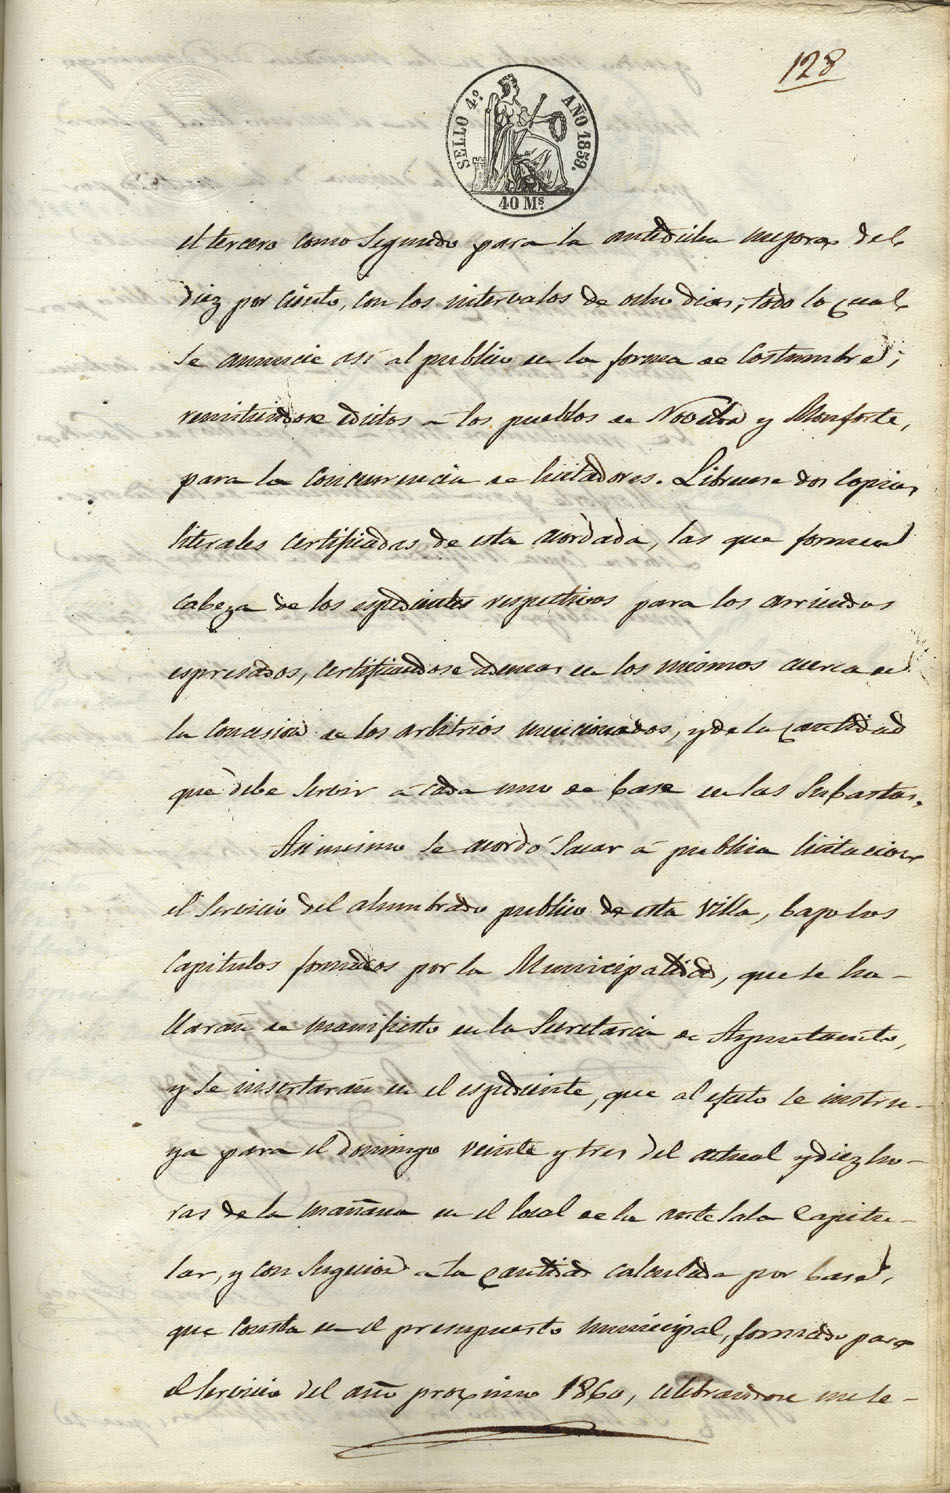 128
SELLO 4º AÑO 1859.
40 Ms
el tercero como segundo para la antedicha mejora del
diez por ciento, con los intervalos de ocho dias; todo lo cual
se anuncie asi al publico en la forma de costumbre;
remitiendose edictos a los pueblos de Novelda y Monforte,
para la concurrencia de licitadores. Librense dos copias
literales certificadas de esta acordada, las que formen
cabeza de los espedientes respectivos para los arriendos
espresados, certificandose ademas en los mismos acerca de
la concesion de los arbitrios mencionados, y de la cantidad
que debe servir a cada uno de base en las subastas.
Asi mismo se acordó sacar á publica licitacion
el servicio del alumbrado publico de esta villa, bajo los
capitulos formados por la Municipalidad, que se ha-
llarán de manifiesto en la Secretaria de Ayuntamto,
y se insertarán en el espediente, que al efecto se instru-
ya para el domingo veinte y tres del actual y diez ho-
ras de la mañana en el local de la antesala Capitu-
lar, y con sugecion a la cantidad calculada por base,
que consta en el presupuesto municipal, formado para
el servicio del año procsimo 1860, celebrandose un se-